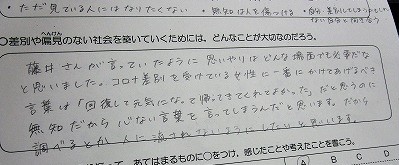 ・ただ見ている人にはなりたくない ・無知は人を傷つける ・自分
ない自分と向き合う
○差別や偏見のない社会を築いていくためには、どんなことが大切なのだろう。
へんけん
藤井さんが言っていたように思いやりはどんな場面でも必要だな
と思いました。コロナ差別を受けている女性に一番にかけてあげるべき
言葉は「回復して元気になって帰ってきてくれてよかった」だと思うのに
無知だから心ない言葉を言ってしまうんだと思います。だから
調べるとか、人に流されないようにしたいと思います。
って、あてはまるものに○をつけ、感じたことや考えたことを書こう。
A B C D